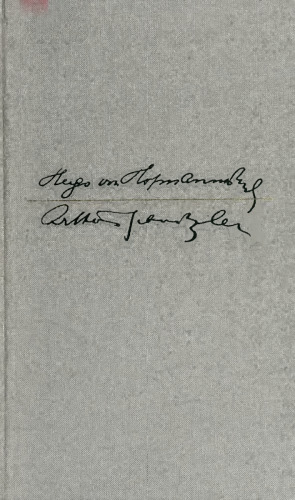 Hugo von Hofmannsthal
Arthur Schnitzler